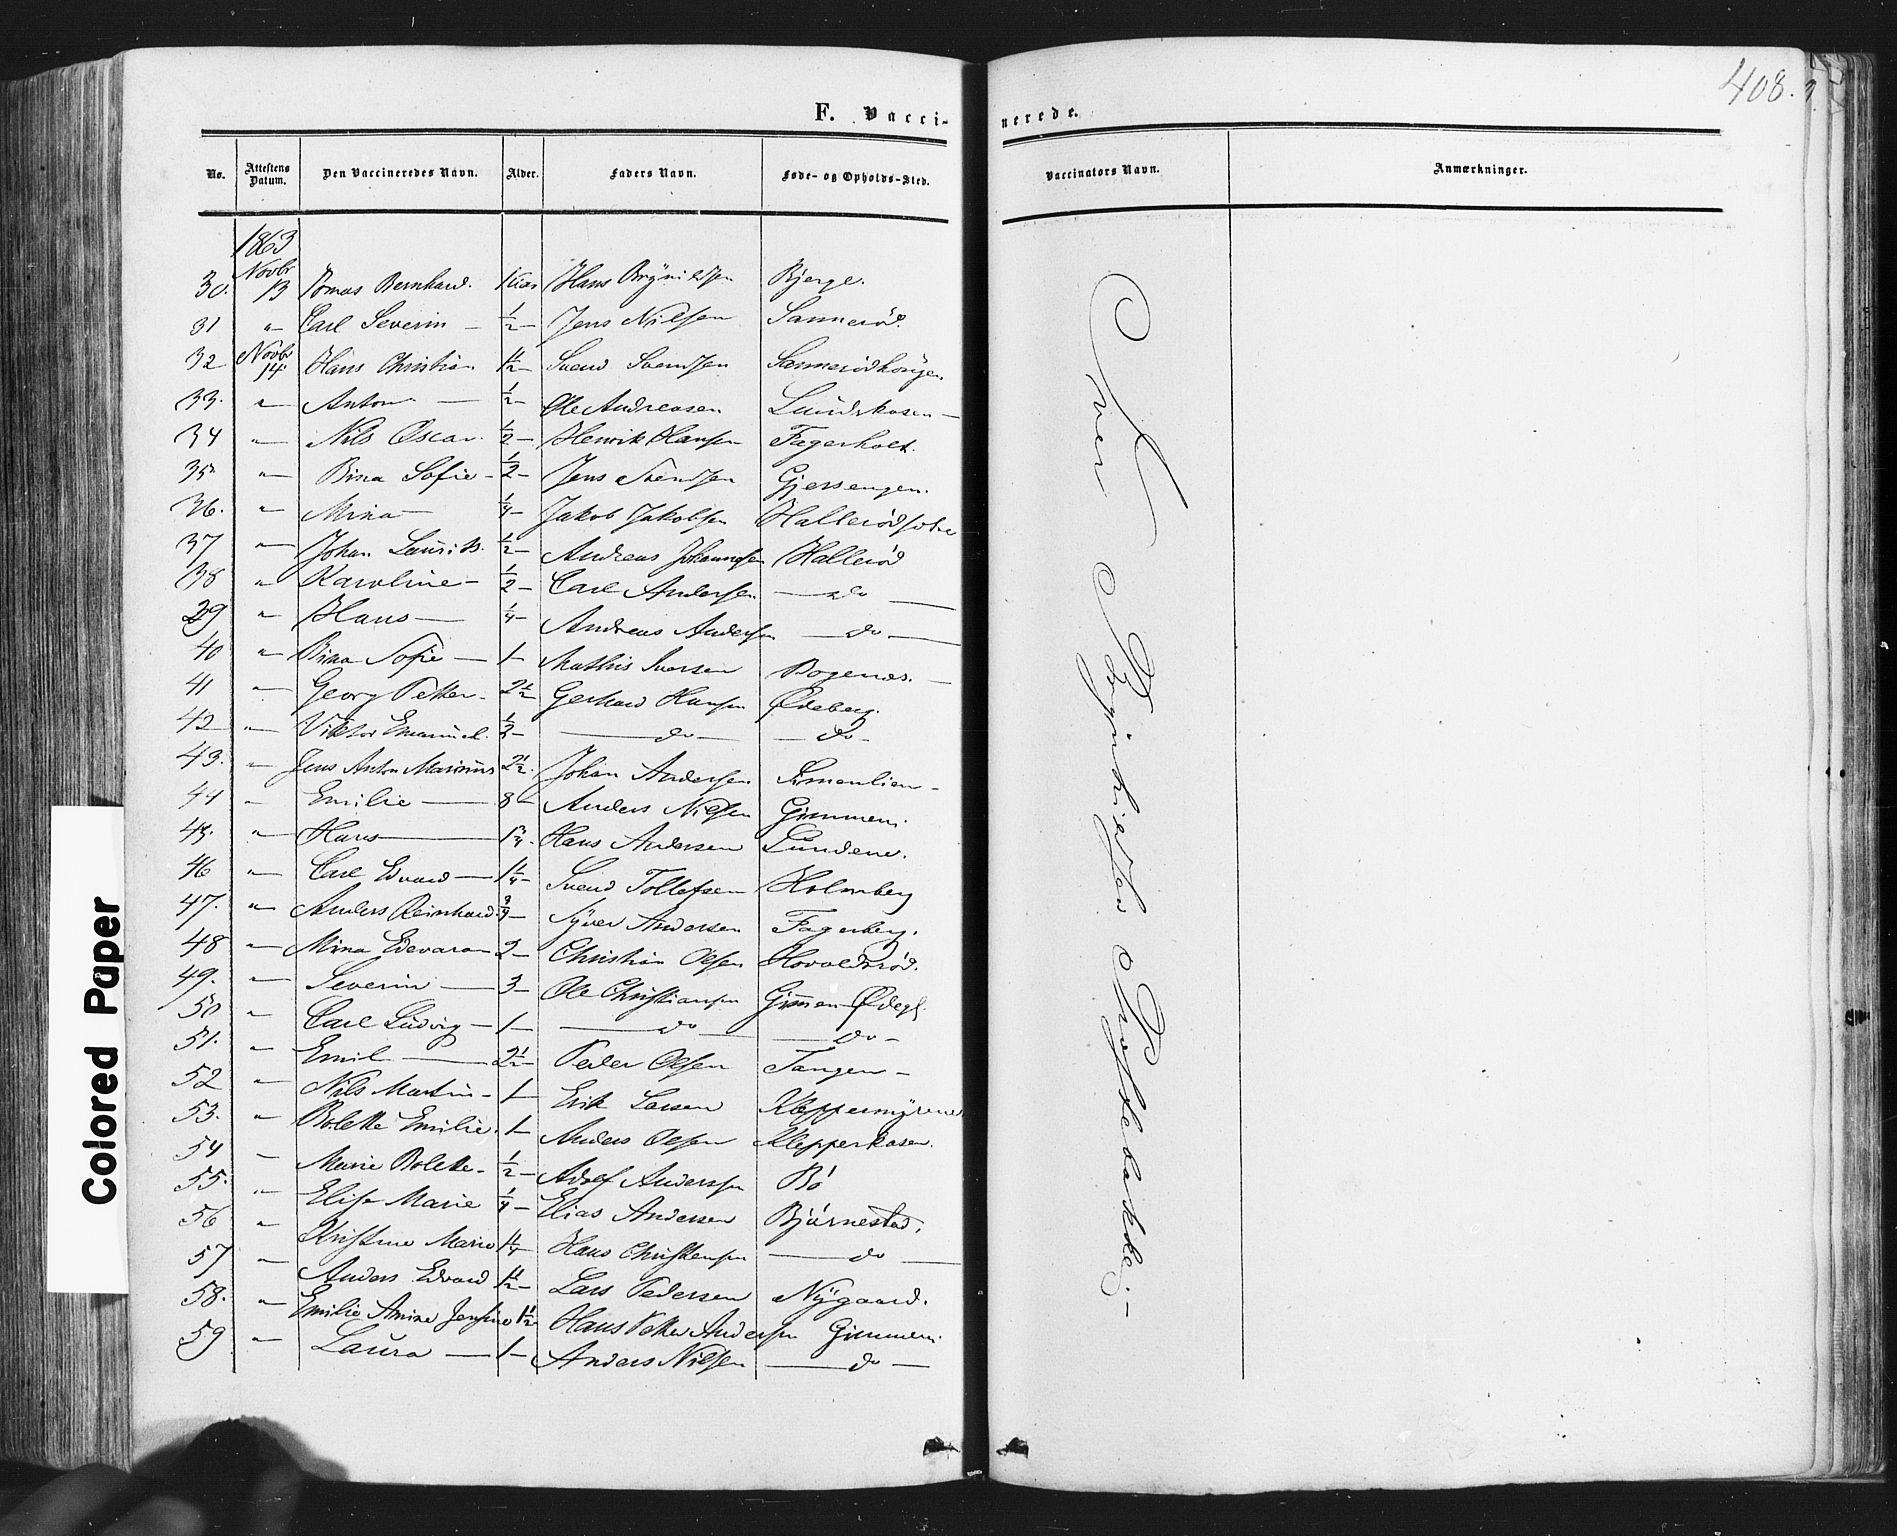 408.
F. Vaccinerede.
No. Attestens Datum. Den Vaccineredes Navn. Alder. Faders Navn. Føde- og Opholds-Sted. Vaccinators Navn. Anmærkninger.
1863
30. Novbr 13 Tomas Bernhard. 1 Aar Hans Brynildsen Bjerge.
31 " Carl Severin — ½ — Jens Nilsen Sannerød.
32 Novbr 14 Hans Christian 1½ — Svend Svendsen
33. " Anton — ½ — Ole Andreasen Lundskasen —
34 " Nils Oscar. ½ — Henrik Hansen Fagerholt.
35 " Bina Sofie — ½ — Jens Svendsen Gjersengen.
36. " Mina — ¼ — Jakob Jakobsen
37 " Johan Laurits. ½ — Andreas Johannesen Hallerød
38 " Karoline — ½ — Carl Andersen — do —
39 " Hans — ¼ — Andreas Andersen — do —
40 " Bina Sofie — 1 — Mathis Iversen Bogenes. —
41 " Georg Petter — 2½ Gerhard Hansen Ødeberg.
42 " Viktor Emanuel. ½ — — do — — do —
43. " Jens Anton Marinius 2½. Johan Andersen Simenlien —
44 " Emilie — 8 — Anders Nilsen Gimmen.
45. " Hans — 1¾. Hans Andersen Lundene.
46 " Carl Edvard — 1¼ — Svend Tollefsen Holmberg
47. " Anders Reinhard. ¾ — Syver Andersen Fagerberg.
48 " Mina Edevara — 2 — Christian Olsen Hovoldsrød.
49. " Severin — 3 — Ole Christiansen Gimen Ødegd.
50 " Carl Ludvig — 1 — — do — — do —
51. " Emil — 2½ — Peder Olsen Tangen —
52 " Nils Martin — 1 — Erik Larsen Kleppermyrene
53. " Bolette Emilie. 1 — Anders Olsen Klepperkasen.
54 " Marie Bolette — ½ — Adolf Anderssen Bø
55. " Elise Marie ¼ — Elias Andersen Bjørnestad.
56 " Kristine Marie 1¼ Hans Christensen — do —
57 " Anders Edvard 1½ — Lars Pedersen Nygaard.
58. " Emilie Amine Jensine 1½ Hans Petter Andersen Gimmen.
59 " Laura — 1 — Anders Nilsen — do —
Colored Paper